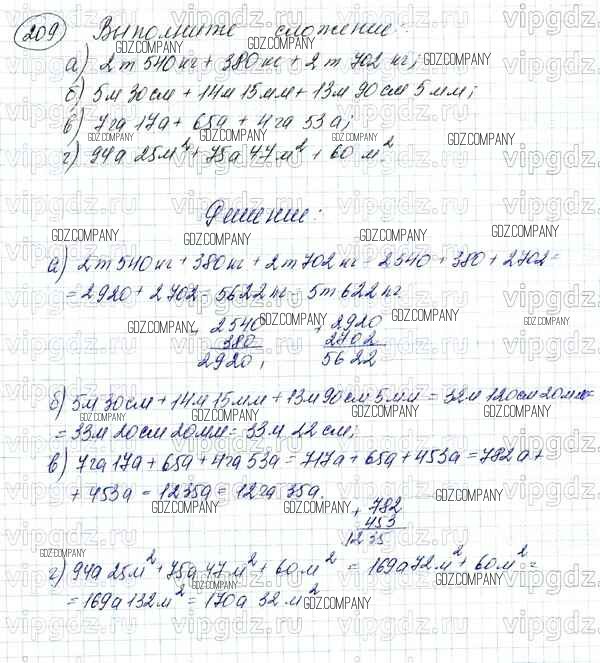 209 Выполните сложение:
а) 2т 540кг + 380кг + 2т 702 кг;
б) 5м 30см + 14м 15мм + 13м 90см 5мм;
в) 7га 17а + 65а + 4га 53а;
г) 94а 25м² + 75а 47м² + 60 м².
Решение:
а) 2т540кг + 380кг + 2т702кг = 2540 + 380 + 2702 =
= 2920 + 2702 = 5622кг = 5т622кг.
+ 2540 + 2920
380 2702
2920, 5622
б) 5м30см + 14м15мм + 13м90см5мм = 32м120см20мм =
= 33м20см20мм = 33м 22см;
в) 7га17а + 65а + 4га53а = 717а + 65а + 453а = 782а +
+ 453а = 1235а = 12га35а.
+ 782
453
1235
г) 94а25м² + 75а47м² + 60м² = 169а72м² + 60м² =
= 169а132м² = 170а 32м²
GDZ.COMPANY
vipgdz.ru